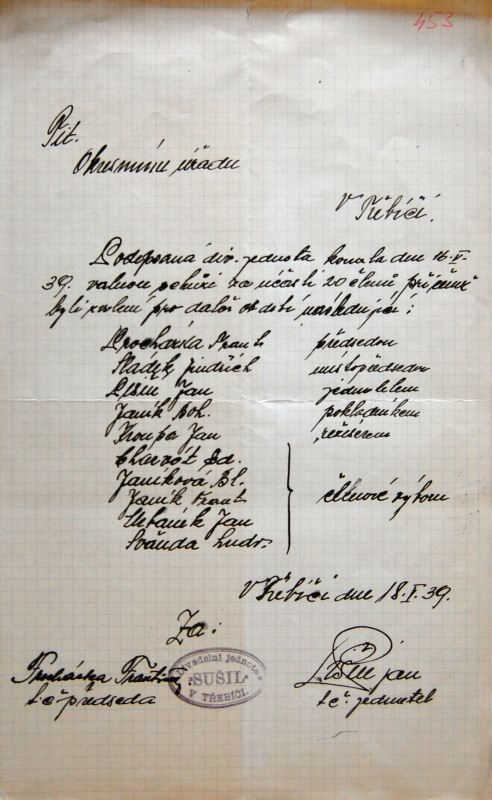 453
Tit.
Okresnímu úřadu
v Třebíči.
Podepsaná div. jednota konala dne 16.I.
39. valnou schůzi za účasti 20 členů při čemž
byli zvoleni pro další období následující:
Procházka Frant. předsedou
Sládek Jindřich místopředsedou
Jan jednatelem
Janík Boh. pokladníkem
Kroupa Jan režisérem
Charvát Ed.
Janíková Bl.
Janík Frant členové výboru
Urbánek Jan
Svånda Ludv.
V Třebíči dne 18.I.39.
Za:
Procházka František
t.č. předseda
Divadelní jednota
"SUŠIL"
V TŘEBÍČI.
Jan
t.č. jednatel